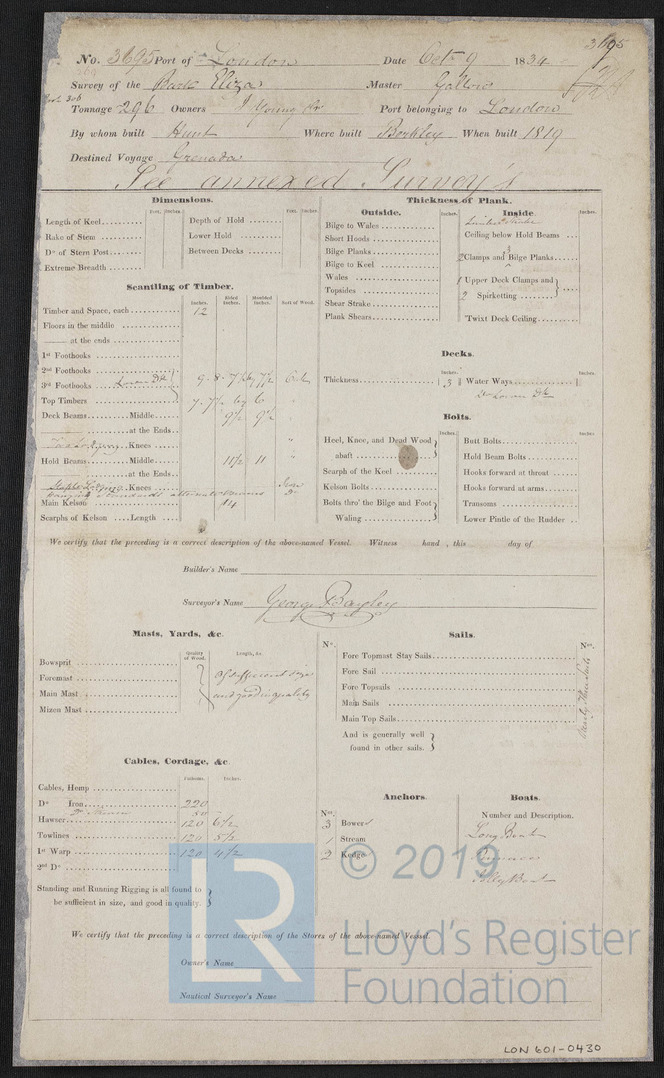 3695
No. 3695 Port of London Date Oct 9 1834
Survey of the Bark Eliza Master
Tonnage 296 Owners Young Port belonging to London
By whom built Hunt Where built When built 1819
Destined Voyage Grenada
See annexed Survey's
Dimensions.
Feet. Inches. Feet. Inches.
Length of Keel
Rake of Stem
Do of Stern Post
Extreme Breadth
Depth of Hold
Lower Hold
Between Decks
Scantling of Timber.
Inches. Sided Inches. Moulded Inches. Sort of Wood.
Timber and Space, each 12
Floors in the middle
at the ends
1st Foothooks
2nd Foothooks
3rd Foothooks
Top Timbers
Deck Beams Middle 9½ 9½
at the ends
Knees
Hold Beams Middle 11½ 11
at the Ends
Knees Iron
Main Kelson 14
Scarphs of Kelson Length
Thickness of Plank.
Outside. Inches.
Bilge to Wales
Short Hoods
Bilge Planks
Bilge to Keel
Wales
Topsides
Shear Strake
Plank Shears
Inside. Inches.
Ceiling below Hold Beams
2 Clamps and 3 Bilge Planks
1 Upper Deck Clamps and
2 Spirketting
'Twixt Deck Ceiling
Decks.
Inches. Inches.
Thickness 3 Water Ways
Bolts.
Inches. Inches
Heel, Knee, and Dead Wood
abaft
Scarph of the Keel
Kelson Bolts
Bolts thro' the Bilge and Foot
Waling
Butt Bolts
Hold Beam Bolts
Hooks forward at throat
Hooks forward at arms
Transoms
Lower Pintle of the Rudder
We certify that the preceding is a correct description of the above-named Vessel. Witness hand, this day of
Builder's Name
Surveyor's Name George Bayley
Masts, Yards, &c.
Quality of Wood. Length, &c.
Bowsprit
Foremast
Main Mast
Mizen Mast
of sufficient size
and good in quality
Sails.
No.
Fore Topmast Stay Sails
Fore Sail
Fore Topsails
Main Sails
Main Top Sails
And is generally well
found in other sails.
Cables, Cordage, &c.
Fathoms. Inches.
Cables, Hemp
Do Iron 220
Hawser 120 6½
Towlines 120 5½
1st Warp 120 4½
2nd Do
Standing and Running Rigging is all found to
be sufficient in size, and good in quality.
Anchors.
No.
3 Bower
1 Stream
2 Kedge
Boats.
Number and Description.
Long Boat
Pinnace
Jolly Boat
We certify that the preceding is a correct description of the Stores of the above-named Vessel.
Owner's Name
Nautical Surveyor's Name
LR
© 2019
Lloyd's Register
Foundation
LON 601-0430